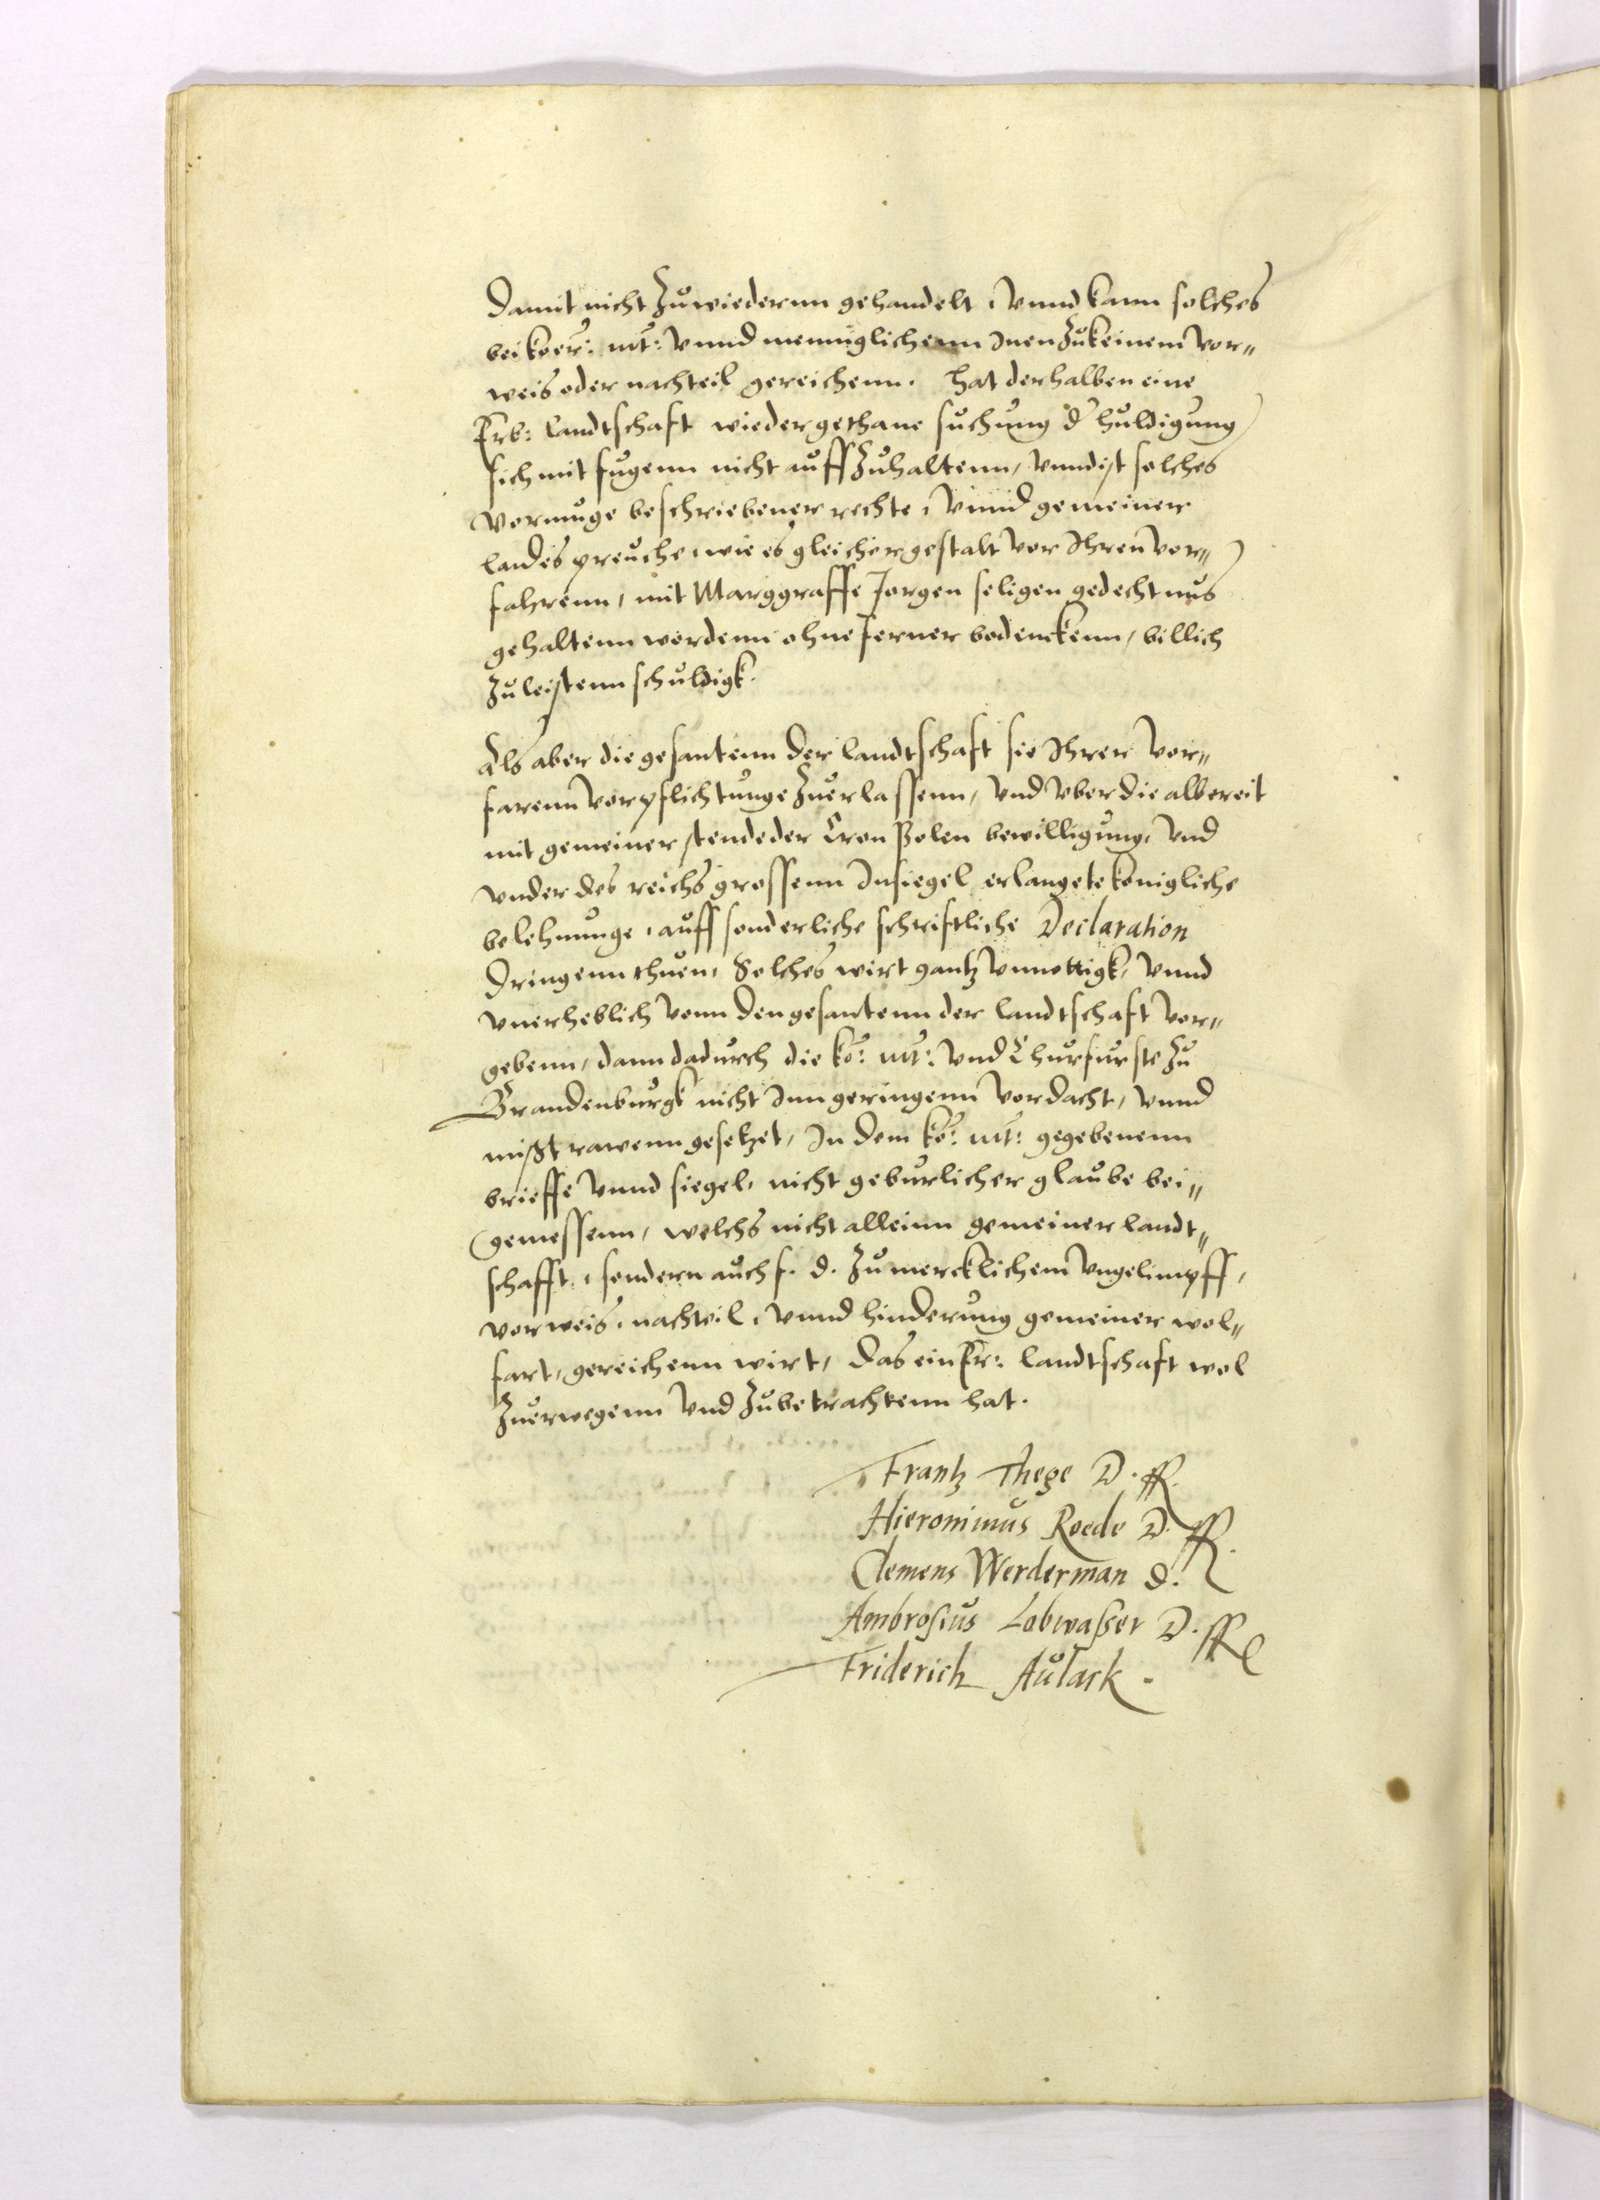 damit nicht zuwiederun gehandelt, Vnnd kann solches
bei koer: mt: vnnd menniglichenn Inen zukeinem vor„
weis oder nachteil gereichenn. hat derhalben eine
Erb: landtschaft wieder gethane suchung d' huldigung
sich mit fugenn nicht auffzuhaltenn, vnnd ist solches
vermuge beschriebener rechte, Vnnd gemeiner
landes preuche, wie es gleicher gestalt vor Ihren vor„
fahrenn, mit Marggraffe Jorgen seligen gedechtnus
gehaltenn wordenn ohne ferner bedenckenn, billich
zuleistenn schuldigk.
Als aber die gesantenn der landtschaft sie Ihrer vor„
farenn vorpflichtunge zuerlassenn, vnd vber die albereit
mit gemeiner stende der Cron Polen bewilligung, vnd
vnder des reichs grossenn Insiegel erlangete konigliche
belehnunge, auff sonderliche schriftliche Declaration
dringenn thuen, Solches wirt gantz vnnottigk, vnnd
vnerheblich vonn den gesantenn der landtschaft vor„
gebenn, dann dadurch die ko: mt: vnd Churfurste zu
Brandenburgk nicht Inn geringenn vordacht, vnnd
mißtrawenn gesetzet, In dem ko: mt: gegebenenn
brieffe vnnd siegel, nicht geburlicher glaube bei„
gemessenn, welchs nicht alleinn gemeiner landt„
schafft, sondern auch f. d. zu mercklichem vngelimpff,
vorweis, nachteil, vnnd hinderung gemeiner wol„
fart, gereichenn wirt, das ein Er: landtschaft wol
zuerwegenn vnd zubetrachtenn hat.
Frantz Thege D.
Hieronimus Roede D.
Clemens Werderman d.
Ambrosius Lobwaßer D.
Friderich Aulack.